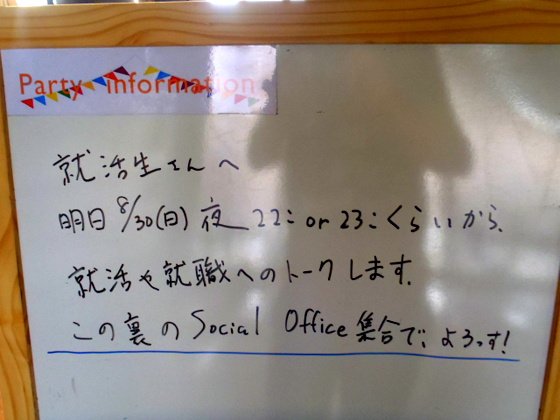 Party information
就活生さんへ
明日 8/30(日) 夜 22: or 23:くらいから、
就活や就職へのトークします。
この裏の Social Office 集合で、よろっす!